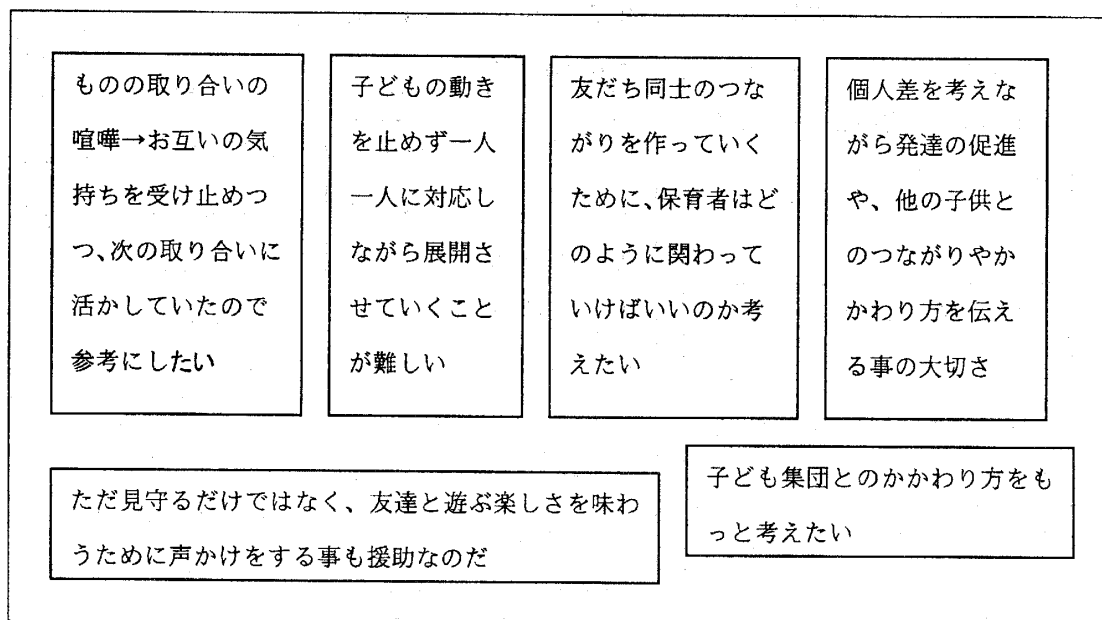 ものの取り合いの
喧嘩→お互いの気
持ちを受け止めつ
つ、次の取り合いに
活かしていたので
参考にしたい
子どもの動き
を止めず一人
一人に対応し
ながら展開さ
せていくこと
が難しい
友だち同士のつな
がりを作っていく
ために、保育者はど
のように関わって
いけばいいのか考
えたい
個人差を考えな
がら発達の促進
や、他の子供と
のつながりやか
かわり方を伝え
る事の大切さ
ただ見守るだけではなく、友達と遊ぶ楽しさを味わ
うために声かけをする事も援助なのだ
子ども集団とのかかわり方をも
っと考えたい